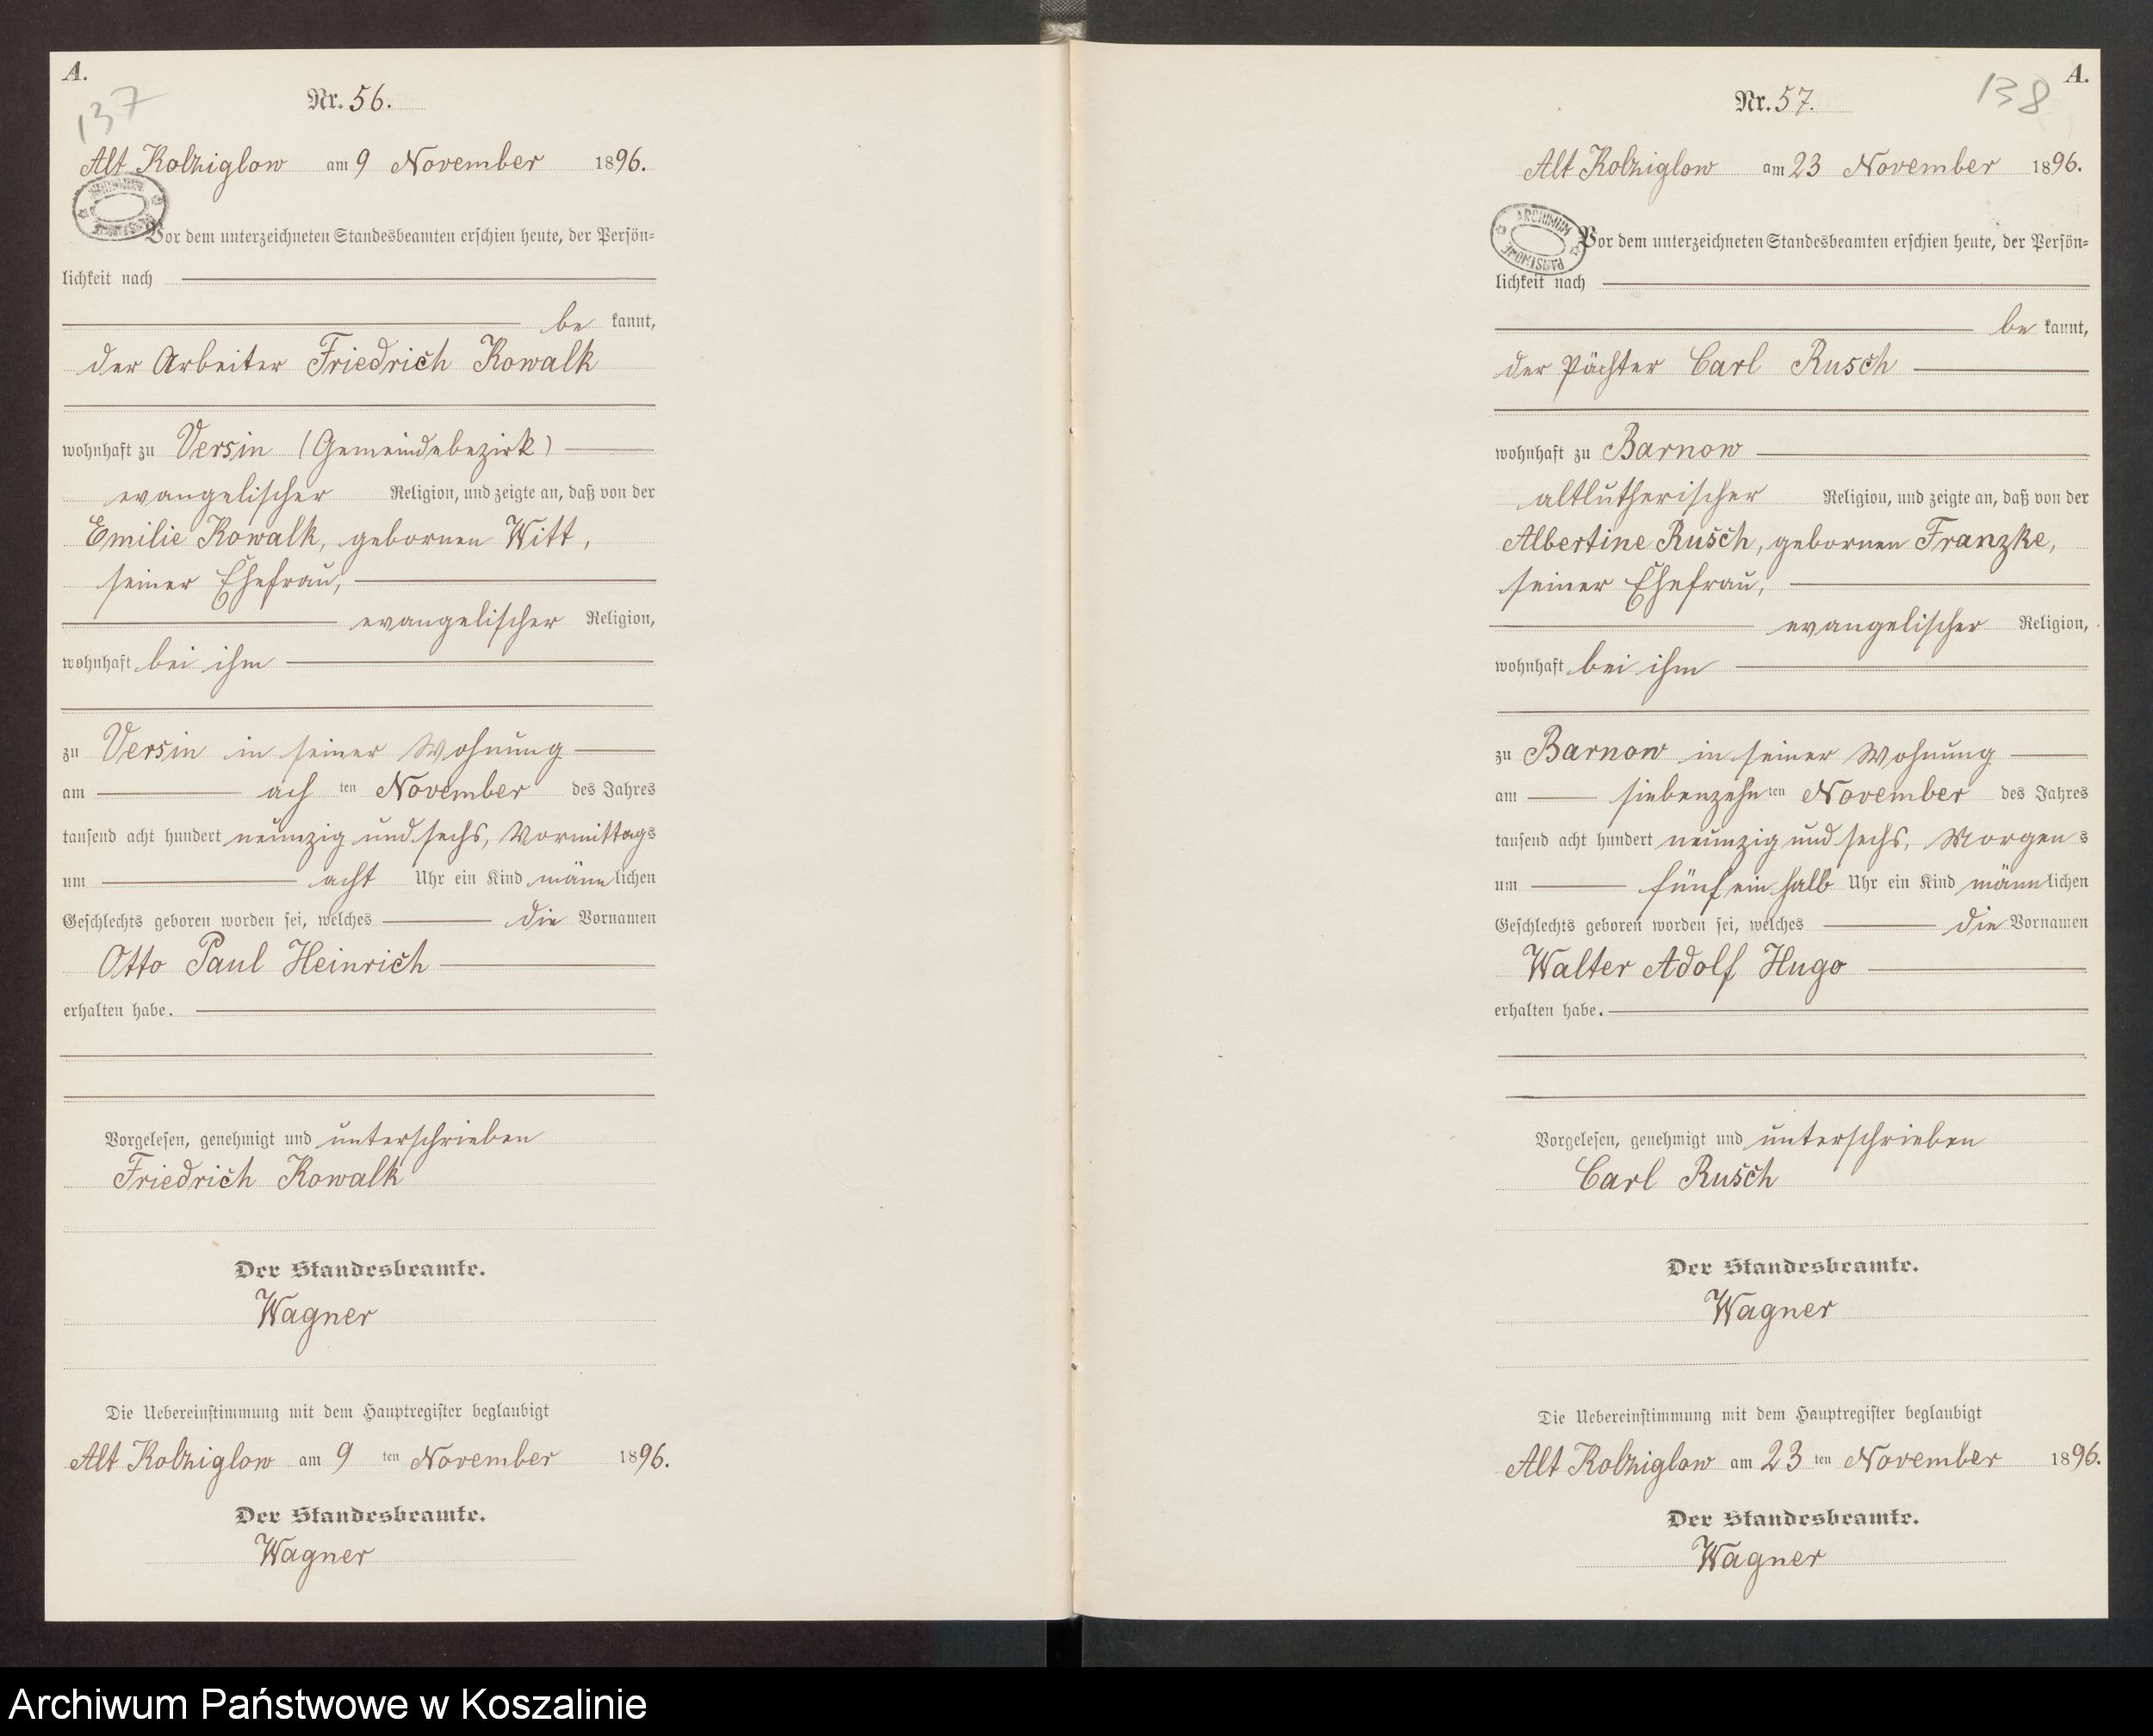 A.
137
Nr. 56.
Alt Kolziglow am 9 November 1896.
Vor dem unterzeichneten Standesbeamten erschien heute, der Persön=
lichkeit nach
be kannt,
der Arbeiter Friedrich Kowalk
wohnhaft zu Versin (Gemeindebezirk)
evangelischer Religion, und zeigte an, daß von der
Emilie Kowalk, gebornen Witt,
seiner Ehefrau,
evangelischer Religion,
wohnhaft bei ihm
zu Versin in seiner Wohnung
am ach ten November des Jahres
tausend acht hundert neunzig und sechs, Vormittags
um acht Uhr ein Kind männlichen
Geschlechts geboren worden sei, welches die Vornamen
Otto Paul Heinrich
erhalten habe.
Vorgelesen, genehmigt und unterschrieben
Friedrich Kowalk
Der Standesbeamte.
Wagner
Die Uebereinstimmung mit dem Hauptregister beglaubigt
Alt Kolziglow am 9 ten November 1896.
Der Standesbeamte.
Wagner
A.
138
Nr. 57.
Alt Kolziglow am 23 November 1896.
ARCHIWUM PAŃSTWOWE
Vor dem unterzeichneten Standesbeamten erschien heute, der Persön=
lichkeit nach
be kannt,
der Pächter Carl Rusch
wohnhaft zu Barnow
altlutherischer Religion, und zeigte an, daß von der
Albertine Rusch, gebornen Franzke,
seiner Ehefrau,
evangelischer Religion,
wohnhaft bei ihm
zu Barnow in seiner Wohnung
am siebenzehn ten November des Jahres
tausend acht hundert neunzig und sechs, Morgens
um fünf ein halb Uhr ein Kind männlichen
Geschlechts geboren worden sei, welches die Vornamen
Walter Adolf Hugo
erhalten habe.
Vorgelesen, genehmigt und unterschrieben
Carl Rusch
Der Standesbeamte.
Wagner
Die Uebereinstimmung mit dem Hauptregister beglaubigt
Alt Kolziglow am 23 ten November 1896.
Der Standesbeamte.
Wagner
Archiwum Państwowe w Koszalinie